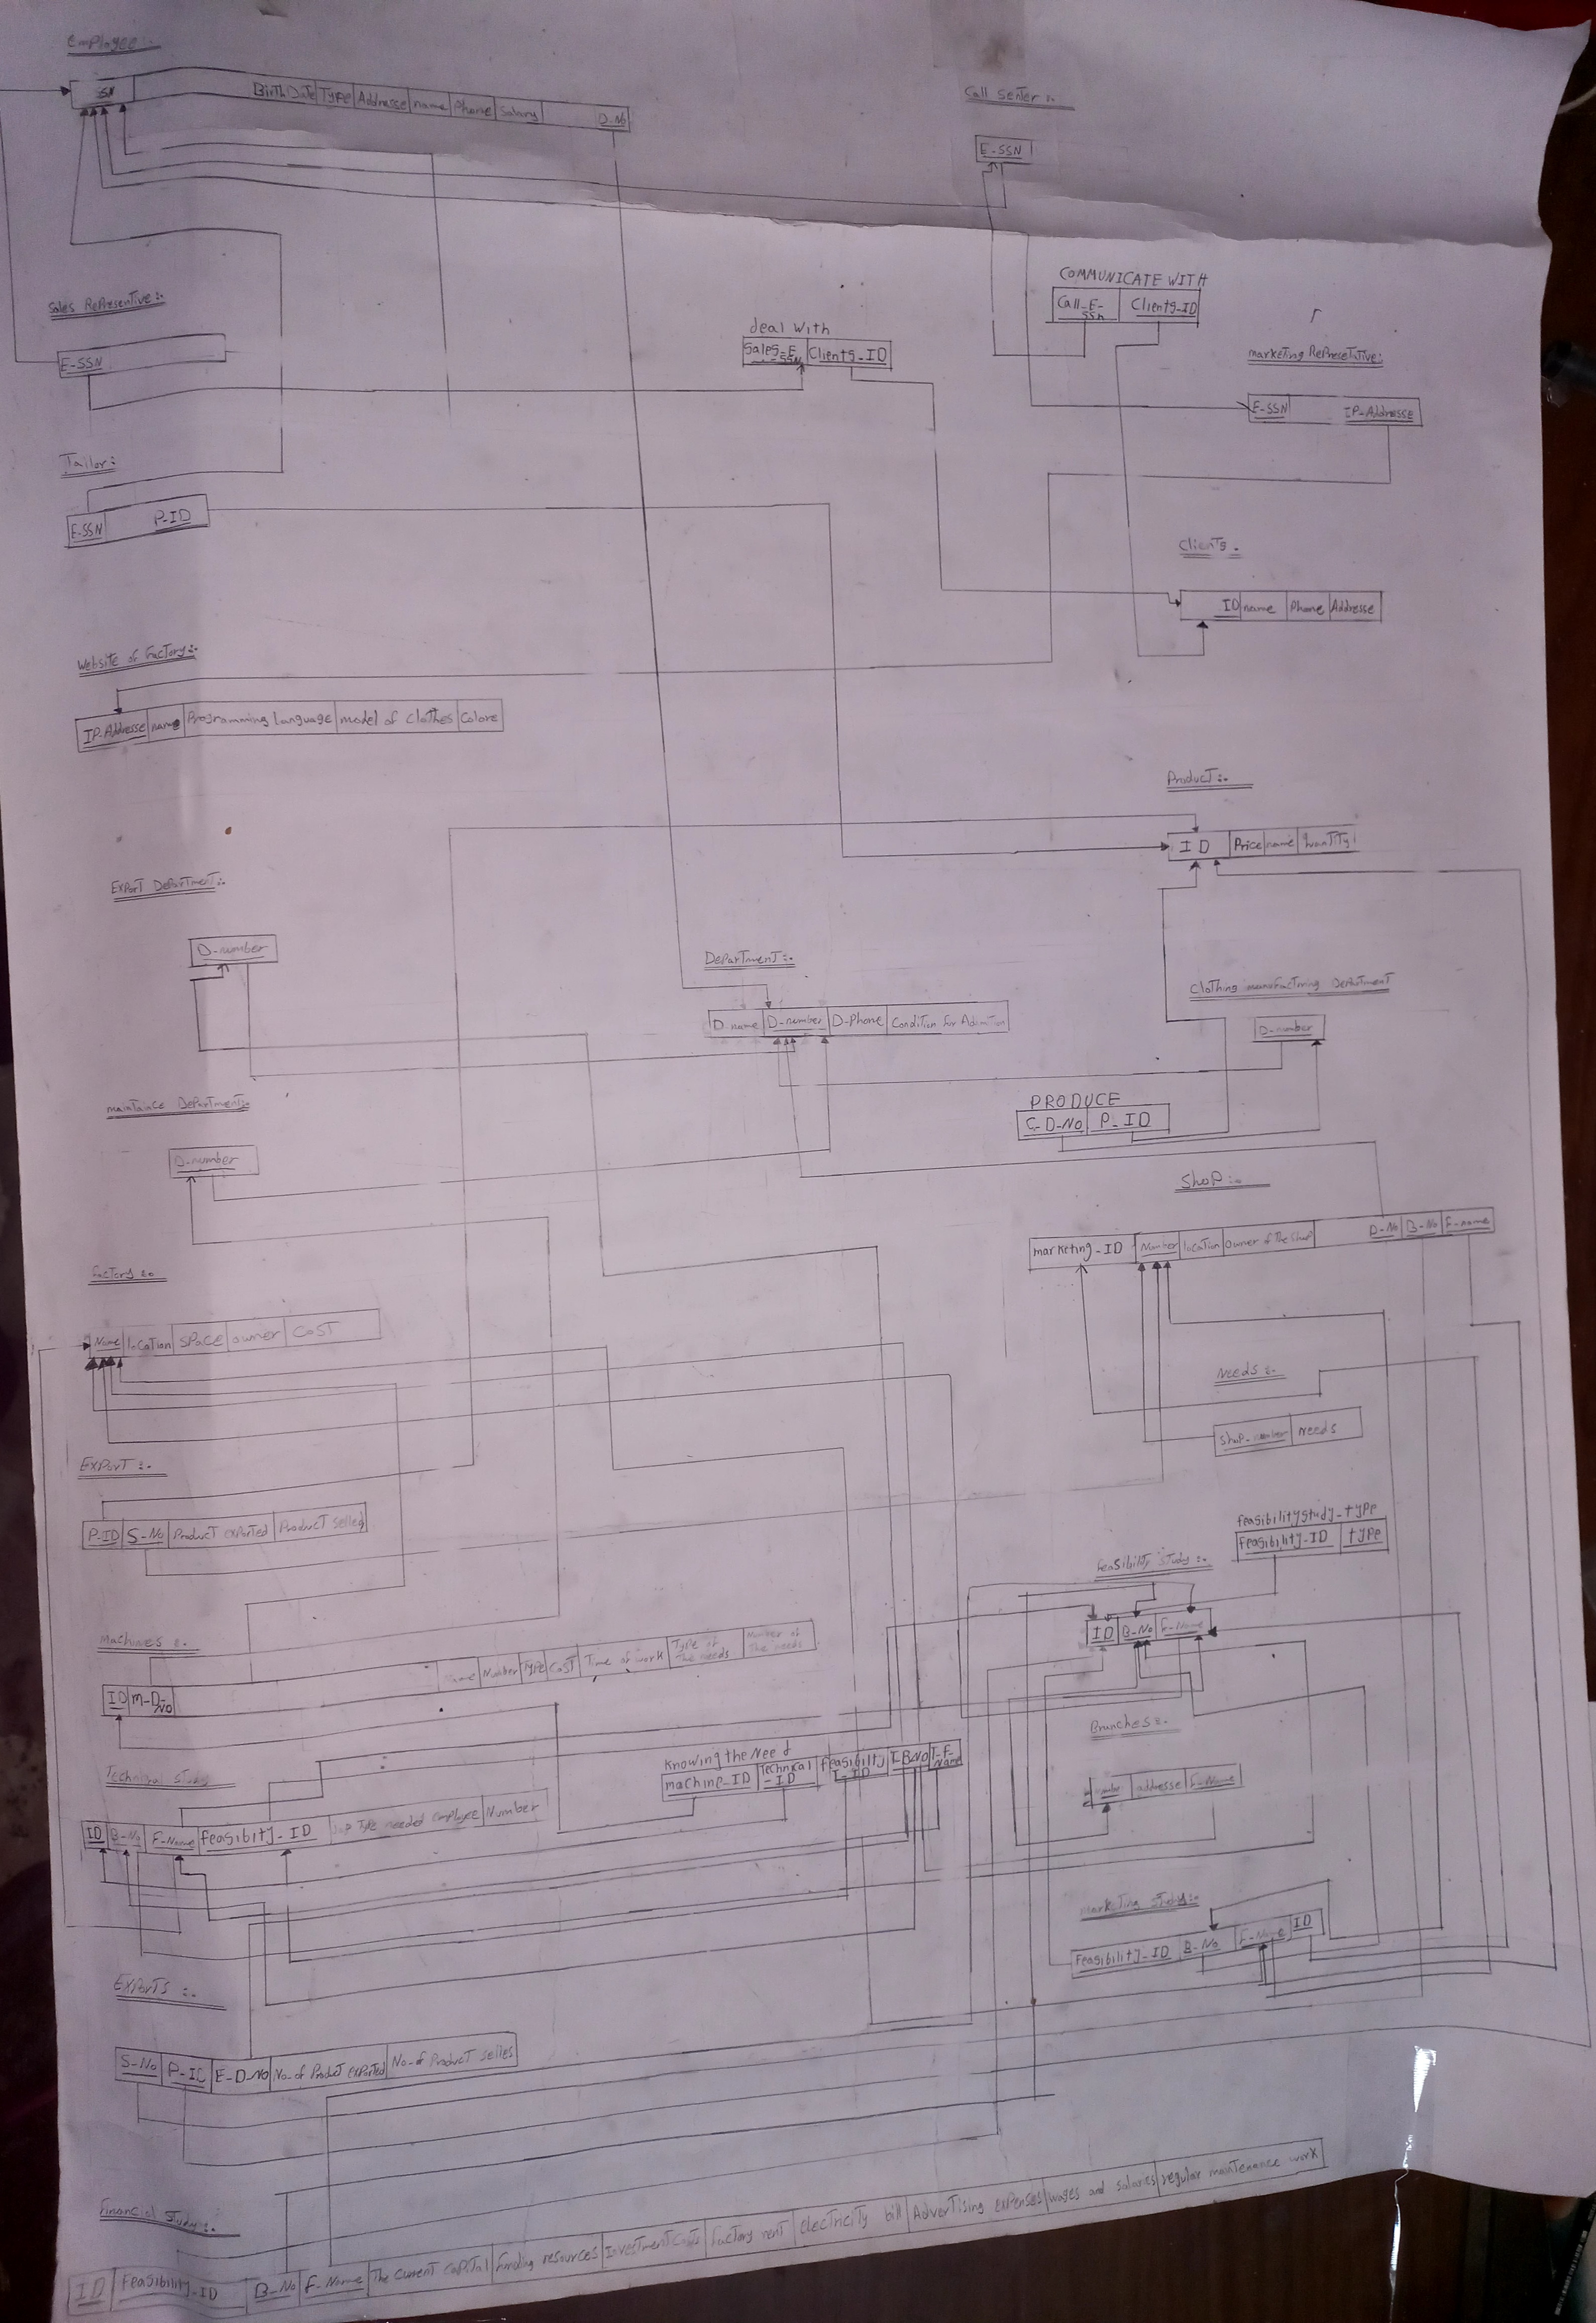 Employee :-
SSN Birth Date Type Addresse name Phone Salary D-No
Call Senter :-
E-SSN
COMMUNICATE WITH
Call-E-SSn Clients-ID
Sales Representive :-
E-SSN
deal with
Sales-E-SSN Clients-ID
marketing Represetitive:
E-SSN IP-Addresse
Tailor :-
E-SSN P-ID
Clients :-
ID name Phone Addresse
Website of Factory :-
IP-Addresse name Programming language model of clothes Colore
Product :-
ID Price name Quantity
Export Department :-
D-number
Department :-
D-name D-number D-Phone Condition for
Clothing manufactring Department
D-number
maintaince Department :-
D-number
PRODUCE
C-D-No P-ID
Shop :-
marketing-ID Number location Owner of the shop D-No B-No F-name
Factory :-
Name location space owner COST
Needs :-
shop-number needs
Export :-
P-ID S-No Product exported Product selled
feasibilitystudy-type
feasibility-ID type
Feasibility study :-
ID B-No F-Name
Machines :-
ID m-D-No name Number Type Cost Time of work Type of The needs Number of The needs
Branches :-
number addresse F-Name
Knowing the Need
machine-ID Technical-ID feasibilty T-ID T-B-No T-F-Name
Technical study
ID B-No F-Name feasibity-ID Type needed employee Number
Marketing study :-
Feasibility-ID B-No F-Name ID
Exports :-
S-No P-ID E-D-No No-of Product exported No-of Product selles
Financial study :-
ID Feasibility-ID B-No F-Name The current capital funding resources Investment costs factory rent electricity bill Advertising expenses wages and salaries regular maintenence work